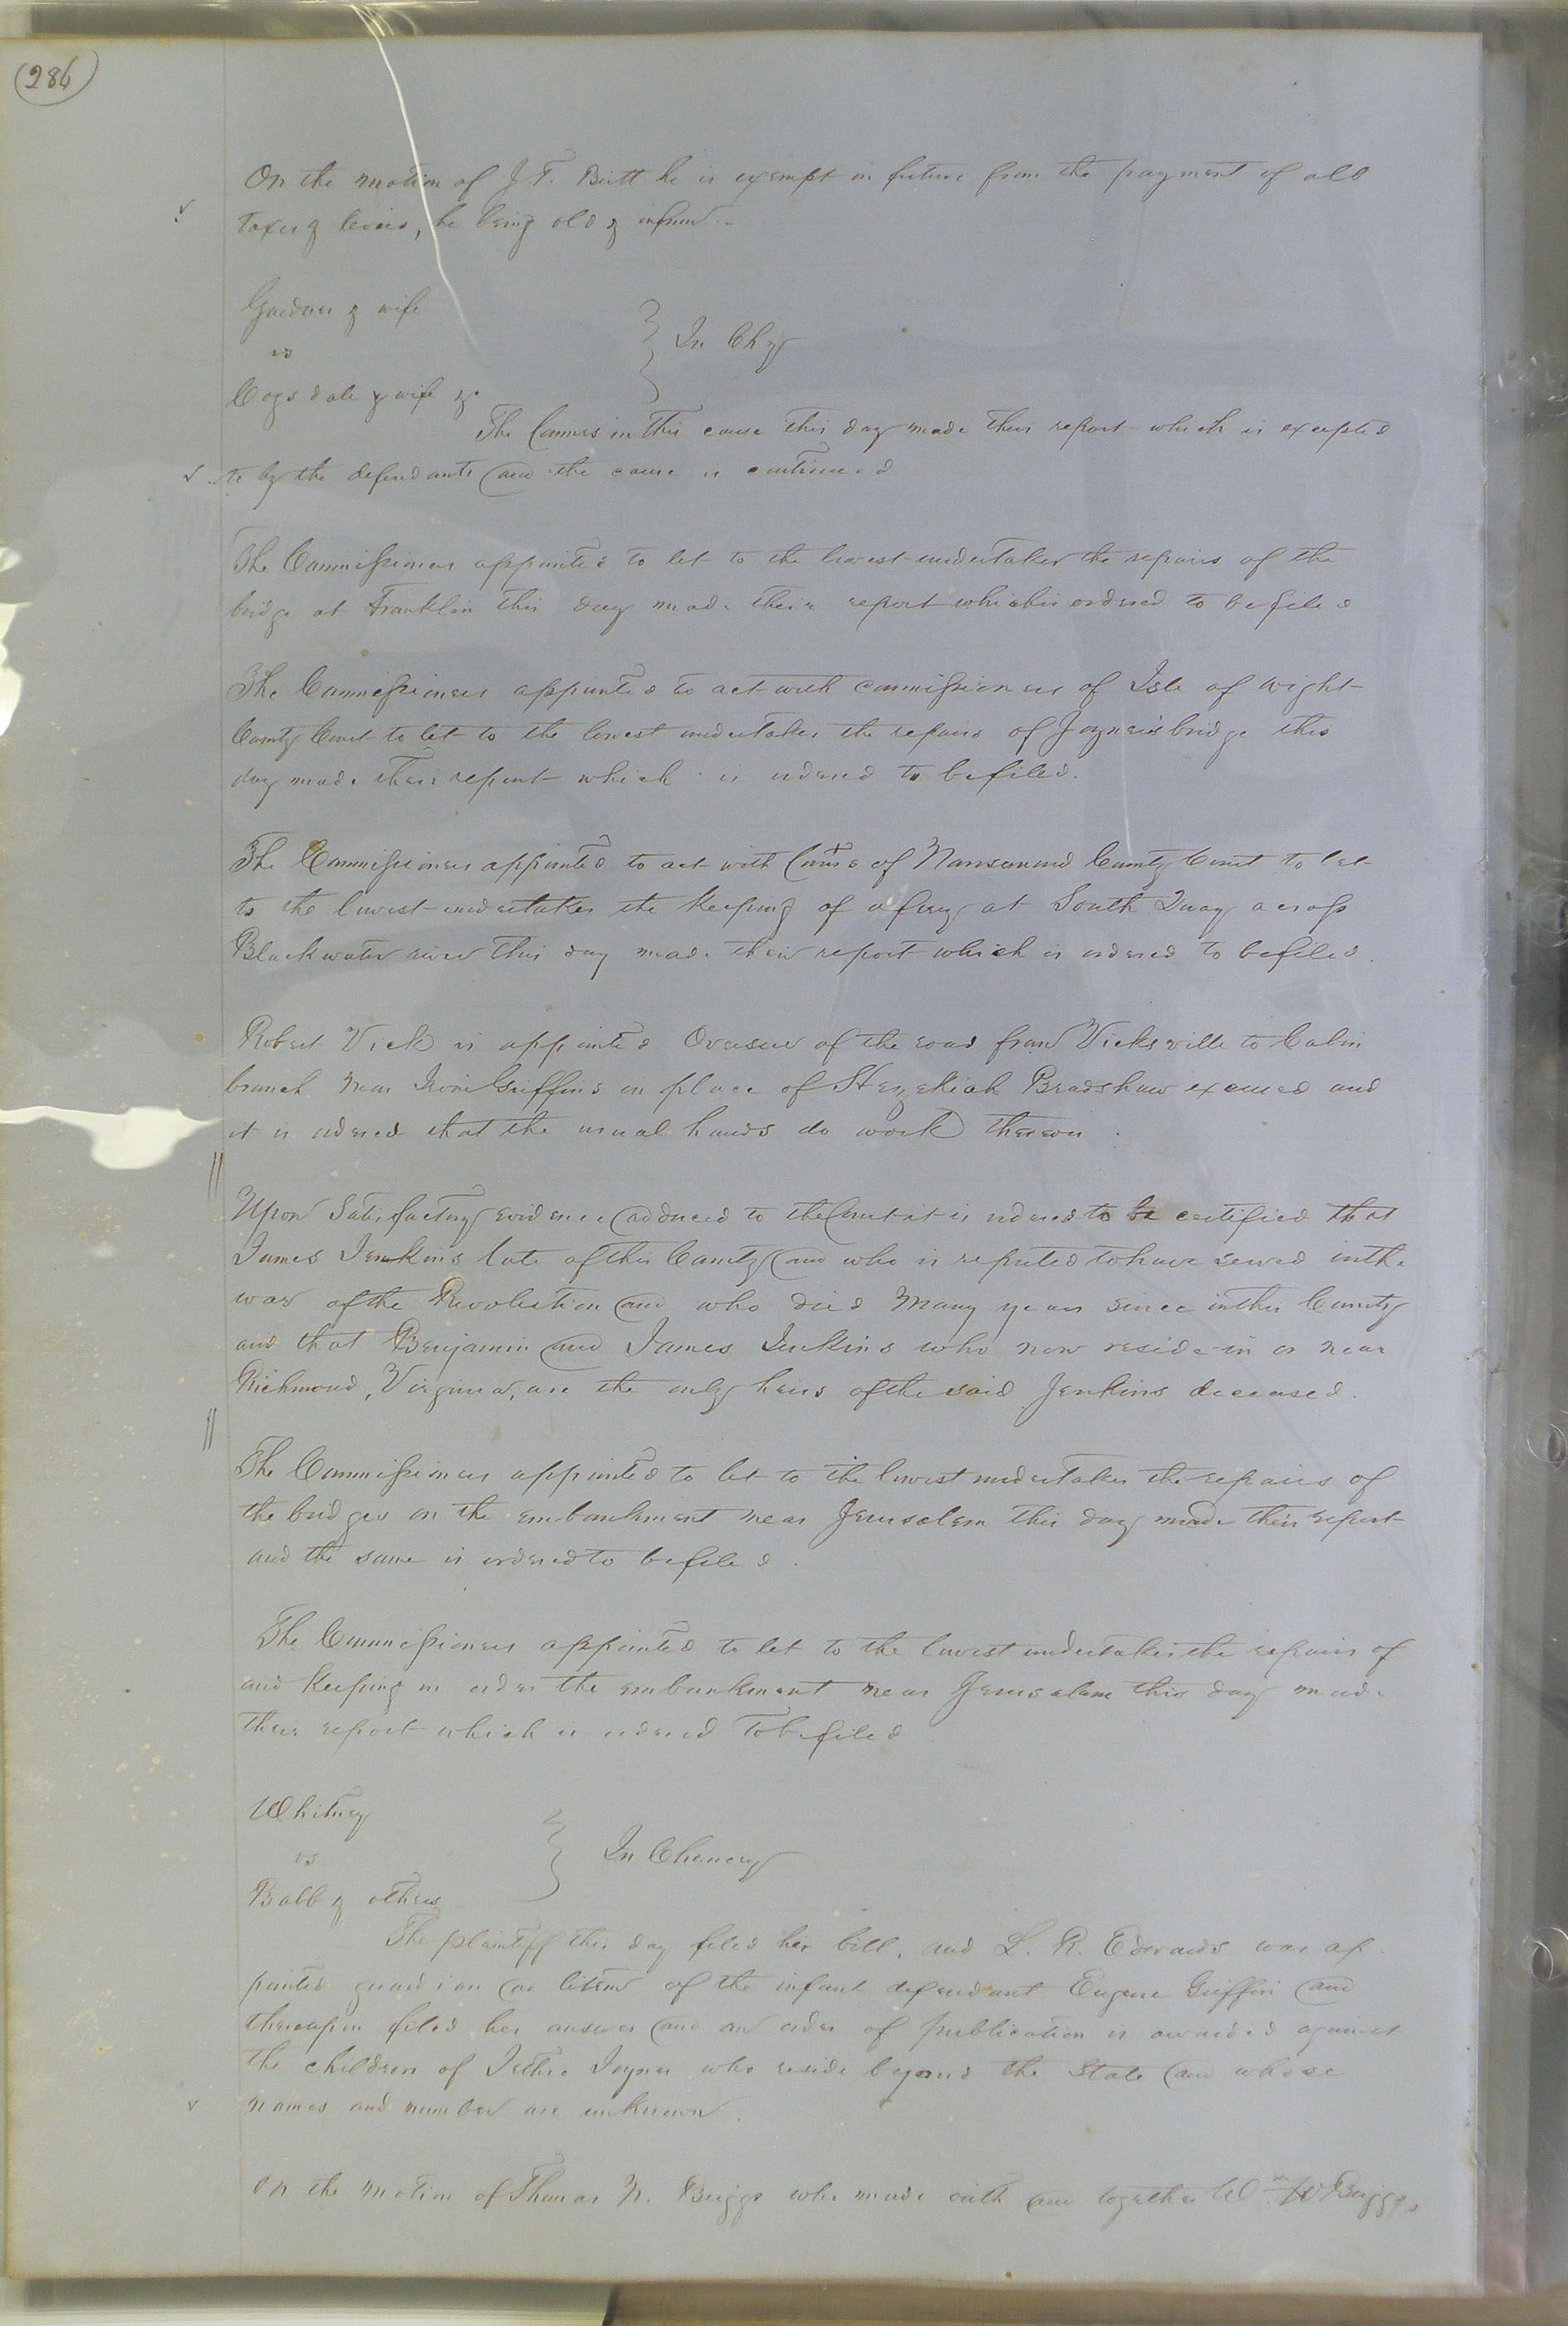 (286)
On the motion of J. T. Britt he is exempt in future from the payment of all
taxes & levies, he being old & infirm
Gardner & wife
vs
In Chy
Cogsdale & wife &c
The Commrs in this cause this day made their report which is excepted
to by the defendants and the cause is continued
The Commissioners appointed to let to the lowest undertaker the repairs of the
bridge at Franklin this day made their report which is ordered to be filed
The Commissioners appointed to act with commissioners of Isle of Wight
County Court to let to the lowest undertaker the repairs of Joyner's bridge this
day made their report which is ordered to be filed.
The Commissioners appointed to act with Comrs of Nansemond County Court to let
to the lowest undertaker the keeping of a ferry at South Quay across
Blackwater river this day made their report which is ordered to be filed.
Robert Vick is appointed Overseer of the road from Vicksville to Cabin
branch near Griffins in place of Hezekiah Bradshaw excused and
it is ordered that the usual hands do work thereon.
Upon Satisfactory evidence adduced to the Court it is ordered to be certified that
James Jenkins late of this County and who is reputed to have served in the
war of the Revolution and who died many years since in this County
and that Benjamin and James Jenkins who now reside in or near
Richmond, Virginia, are the only heirs of the said Jenkins deceased.
The Commissioners appointed to let to the lowest undertaker the repairs of
the bridges on the embankment near Jerusalem this day made their report
and the same is ordered to be filed.
The Commissioners appointed to let to the lowest undertaker the repairs of
and keeping in order the embankment near Jerusalem this day made
their report which is ordered to be filed
Whitney
vs
In Chancery
Babb & others
The plaintiff this day filed her bill, and L. R. Edwards was ap
pointed guardian ad litem of the infant defendant Eugene Griffin and
thereupon filed her answer and an order of publication is awarded against
the children of Jethro Joyner who reside beyond the State and whose
names and number are unknown.
On the motion of Thomas N. Briggs who made oath and together Wm W Briggs,